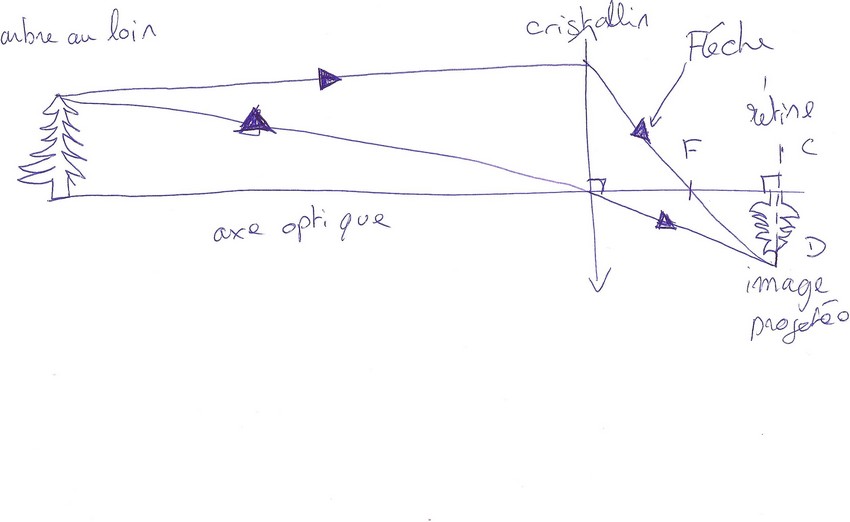 arbre au loin
cristallin
Flèche
rétine
F
C
axe optique
D
image
projetée